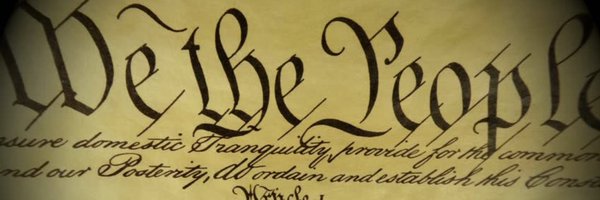 We the People
nsure domestic Tranquility, provide for the common
nd our Posterity, do ordain and establish this Const
Article I